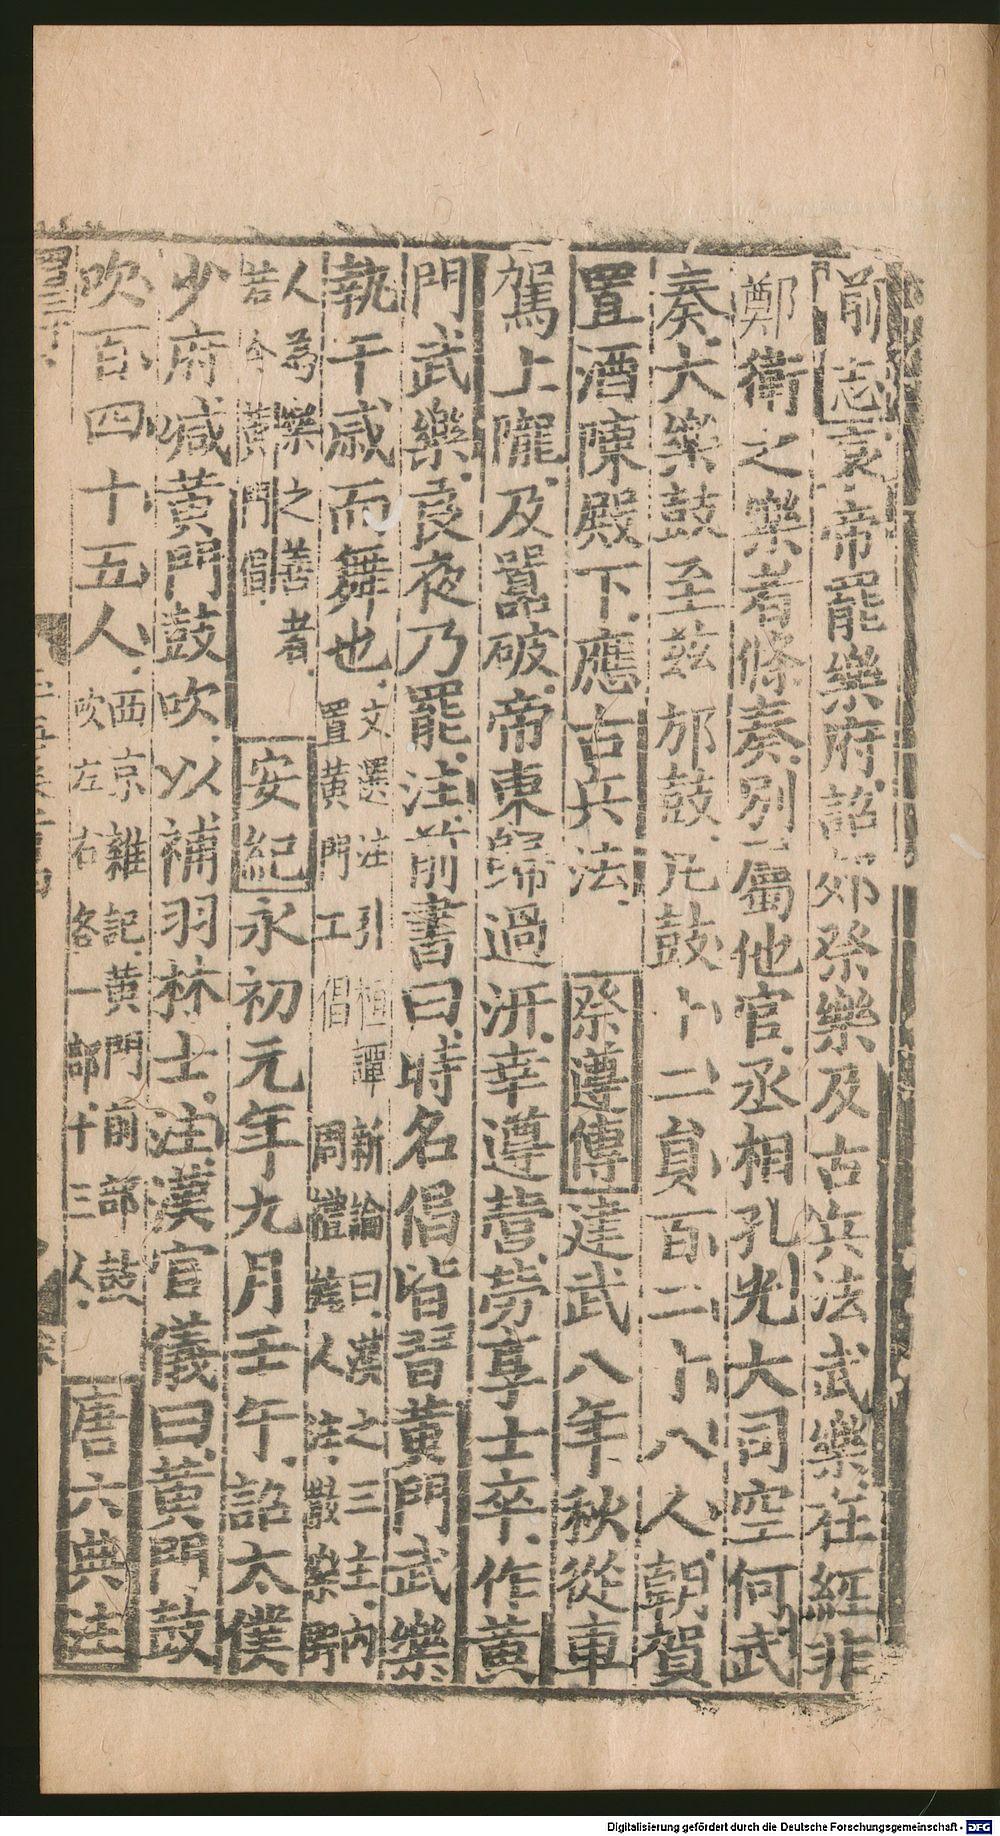 前志哀帝罷樂府詔郊祭樂及古兵法武樂在經非
鄭衛之樂者條奏别屬他官丞相孔光大司空何武
奏大樂鼓至兹邡鼓凡鼓十二員百二十八人朝賀
置酒陳殿下應古兵法 祭遵傳建武八年秋從車
駕上隴及囂破帝東歸過汧幸遵營勞享士卒作黄
門武樂良夜乃罷注前書曰時名倡皆習黄門武樂
執干戚而舞也文選注引桓譚新論曰漢之三主内
置黄門工倡周禮旄人注散樂野
人為樂之善者
若今黄門倡 安紀永初元年九月壬午詔太僕
少府减黄門鼓吹以補羽林士注漢官儀曰黄門鼓
吹百四十五人西京雜記黄門前部鼓
吹左右各一部十三人 唐六典注
Digitalisierung gefördert durch die Deutsche Forschungsgemeinschaft - DFG